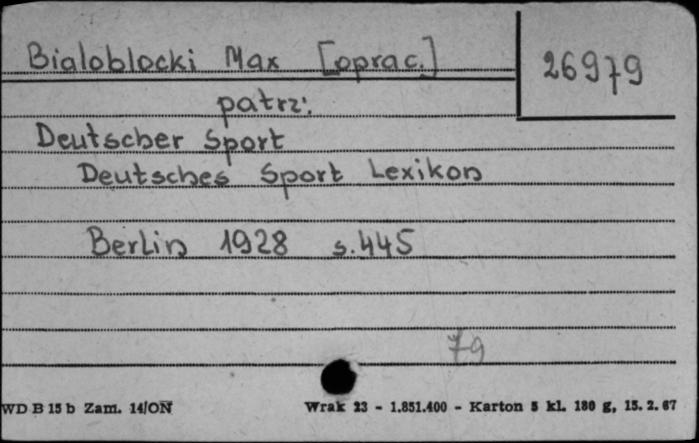 Bialoblocki Max [oprac.]
26979
patrz:
Deutscher Sport
Deutsches Sport Lexikon
Berlin 1928 s.445
79
WD B 15 b Zam. 14/ON
Wrak 23 - 1.851.400 - Karton 5 kl. 180 g, 15. 2. 67